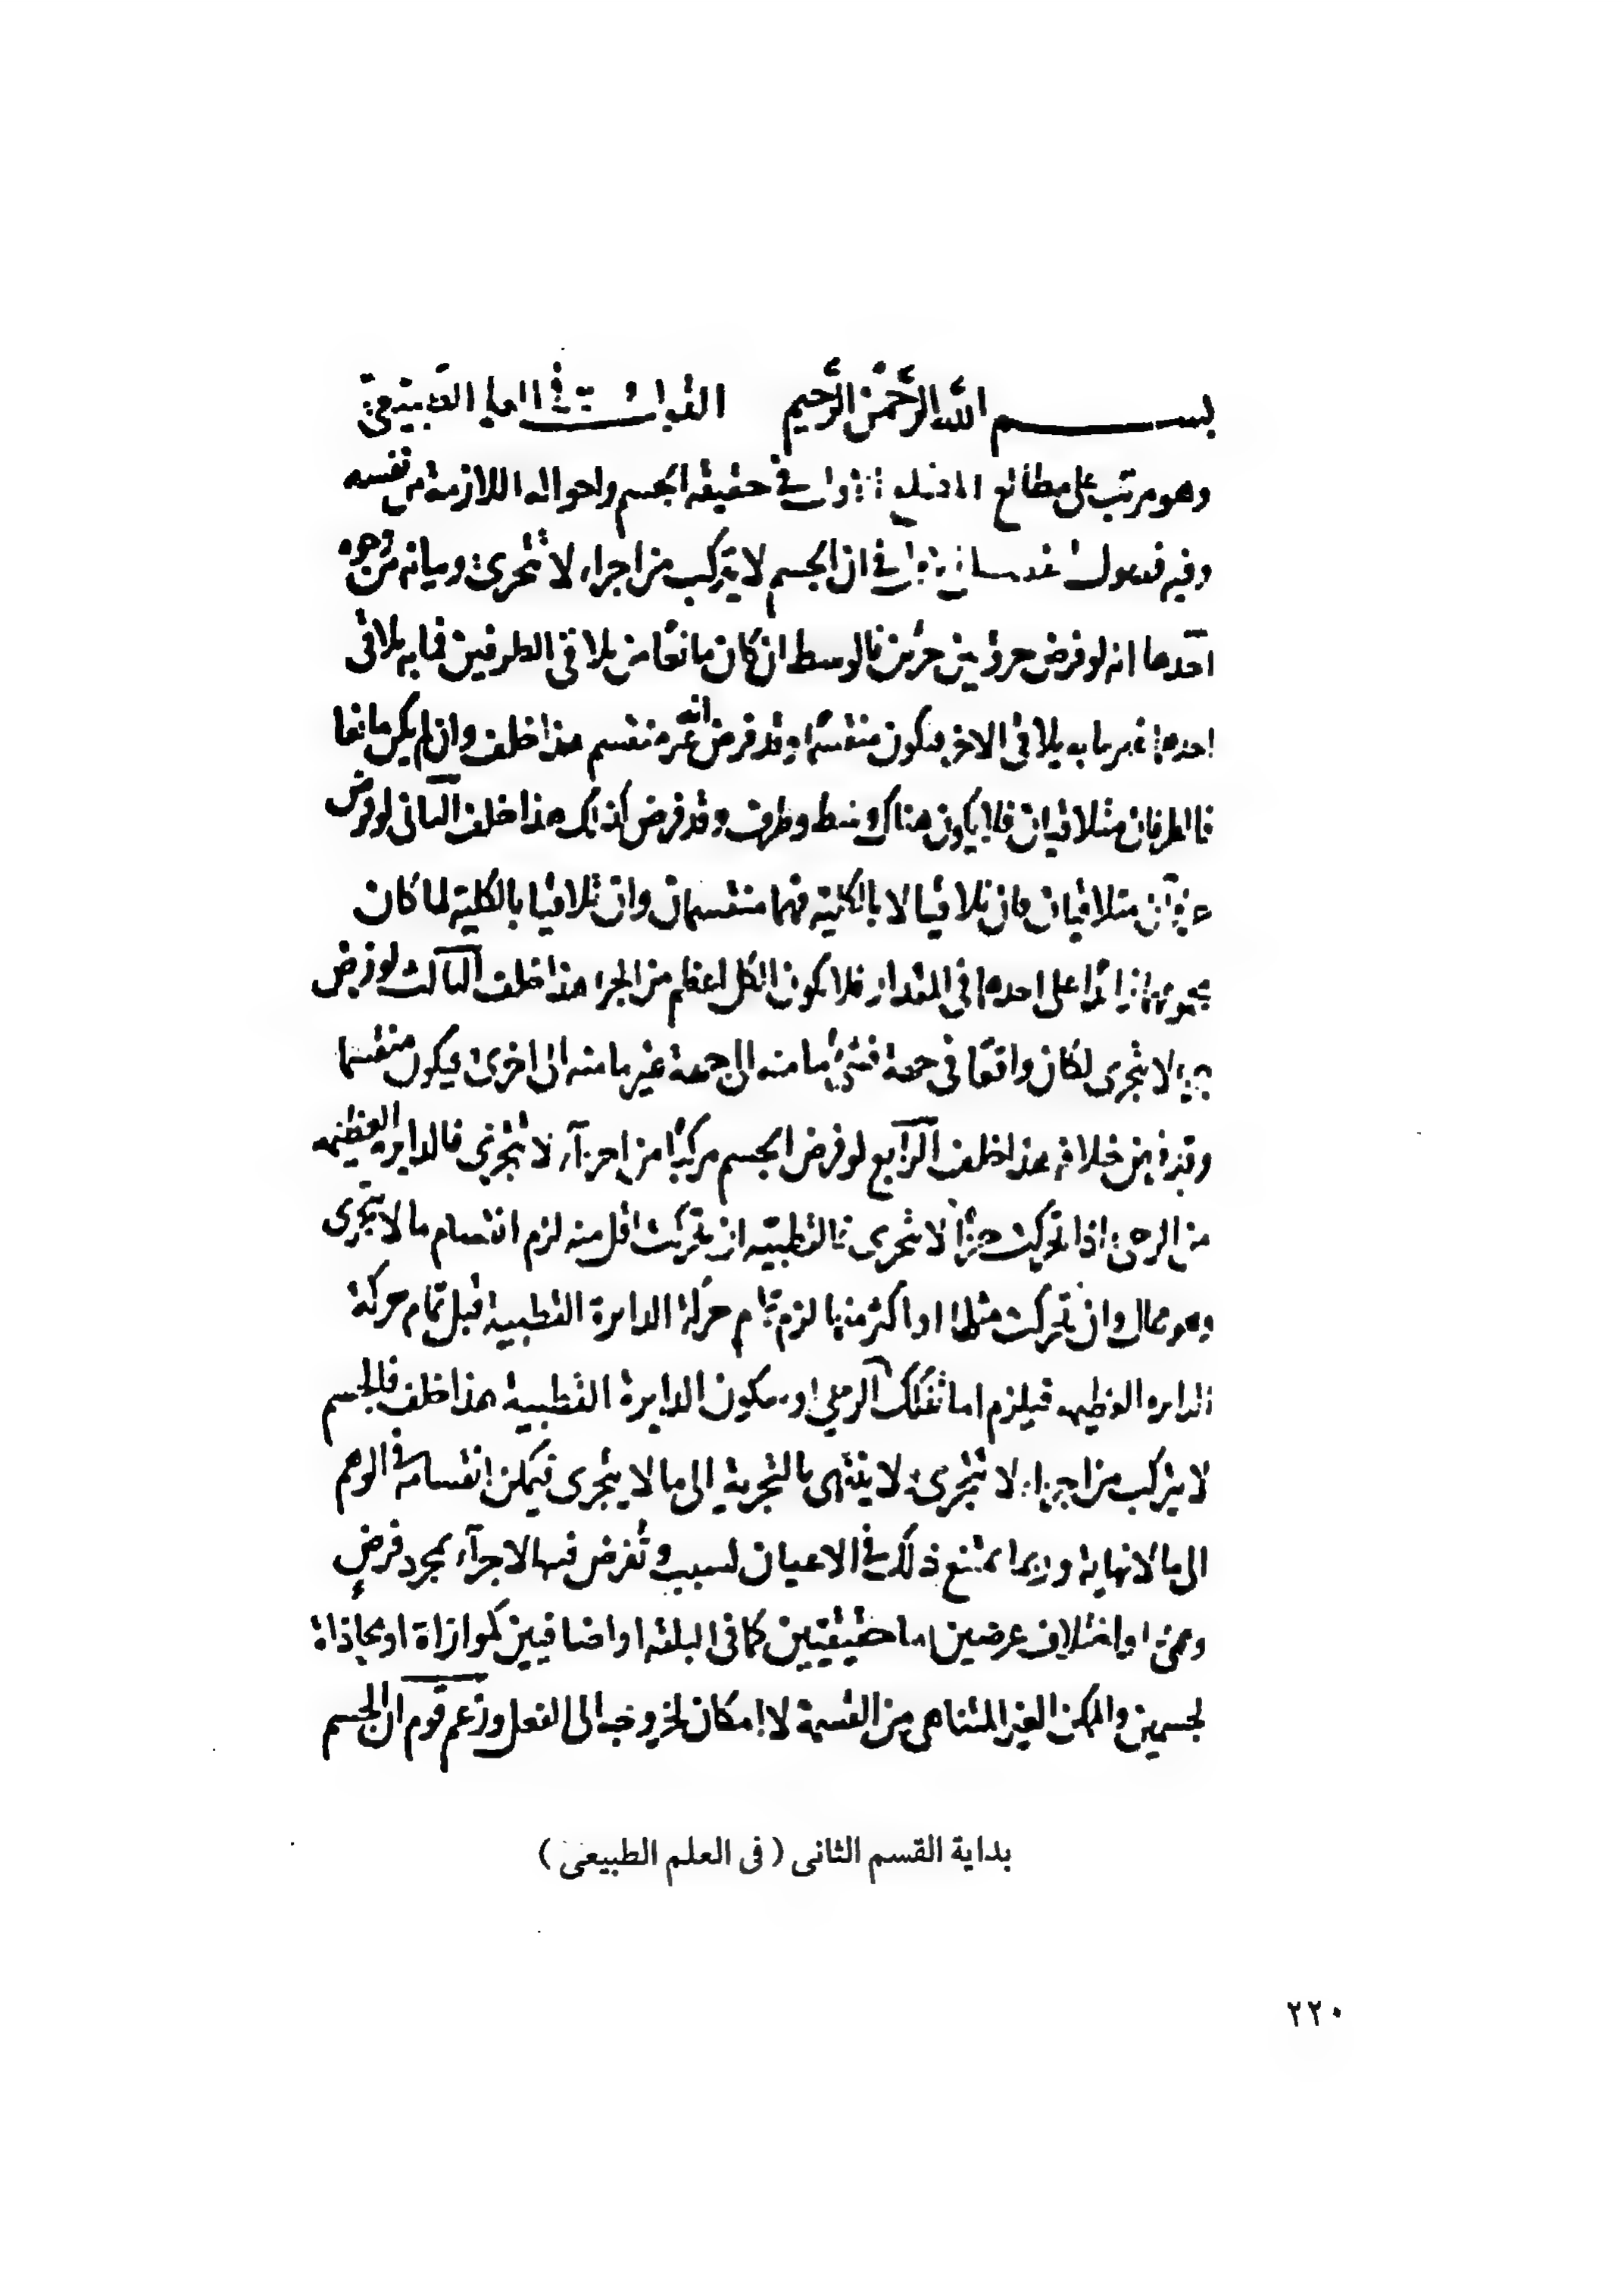 بسم الله الرحمن الرحيم في العلم الطبيعي
وهو مرتب على مطالع في حقيقة الجسم واحواله اللازمة من نفسه
وفيه فصول في ان الجسم لا يتركب من اجزاء لا تتجزى وبيانه من وجوه
احدها انه لو فرض جزؤ بين جزئين فالوسط ان كان مانعا من تلاقى الطرفين فما به يلاقى
احدهما غير ما به يلاقى الاخر فيكون منقسما وقد فرض انه غير منقسم هذا خلف وان لم يكن مانعا
فالطرفان متلاقيان فلا يكون هناك وسط وطرف وقد فرض كذلك هذا خلف الثانى لو فرض
جزآن متلاقيان فان تلاقيا لا بالكلية فهما منقسمان وان تلاقيا بالكلية لما كان
مجموعهما زائدا على احدهما فى المقدار فلا يكون الكل اعظم من الجزء هذا خلف الثالث لو فرض
جزء لا يتجزى لكان واقعا فى جهة ما منه الى جهة غير ما منه الى اخرى فيكون منقسما
وقد فرض خلافه هذا خلف الرابع لو فرض الجسم مركبا من اجزآء لا تتجزى فالدايرة العظيمة
من الرحى اذا تحركت جزأ لا يتجزى فالقطبية ان تحركت اقل منه لزم انقسام ما لا يتجزى
وهو محال وان تحركت مثلها او اكثر منها لزم تمام حركة الدايرة القطبية قبل تمام حركة
الدايره العظيمه فيلزم اما تفكك الرحى او سكون الدايرة القطبية هذا خلف فالجسم
لا يتركب من اجزاء لا تتجزى ولا ينتهى بالتجزية الى ما لا يتجزى فيمكن انقسامه فى الوهم
الى ما لا نهاية وربما يمتنع ذلك فى الاعيان لسبب وتفرض فيها الاجزآء بمجرد فرض
وهمى او اختلاف عرضين اما حقيقيين كما فى البلقه او اضافيين كموازاة او محاذاة
لجسمين والممكن الغير المتناهى من القسمة لا امكان لخروجه الى الفعل وزعم قوم ان الجسم
بداية القسم الثانى ( فى العلم الطبيعى )
٢٢٠